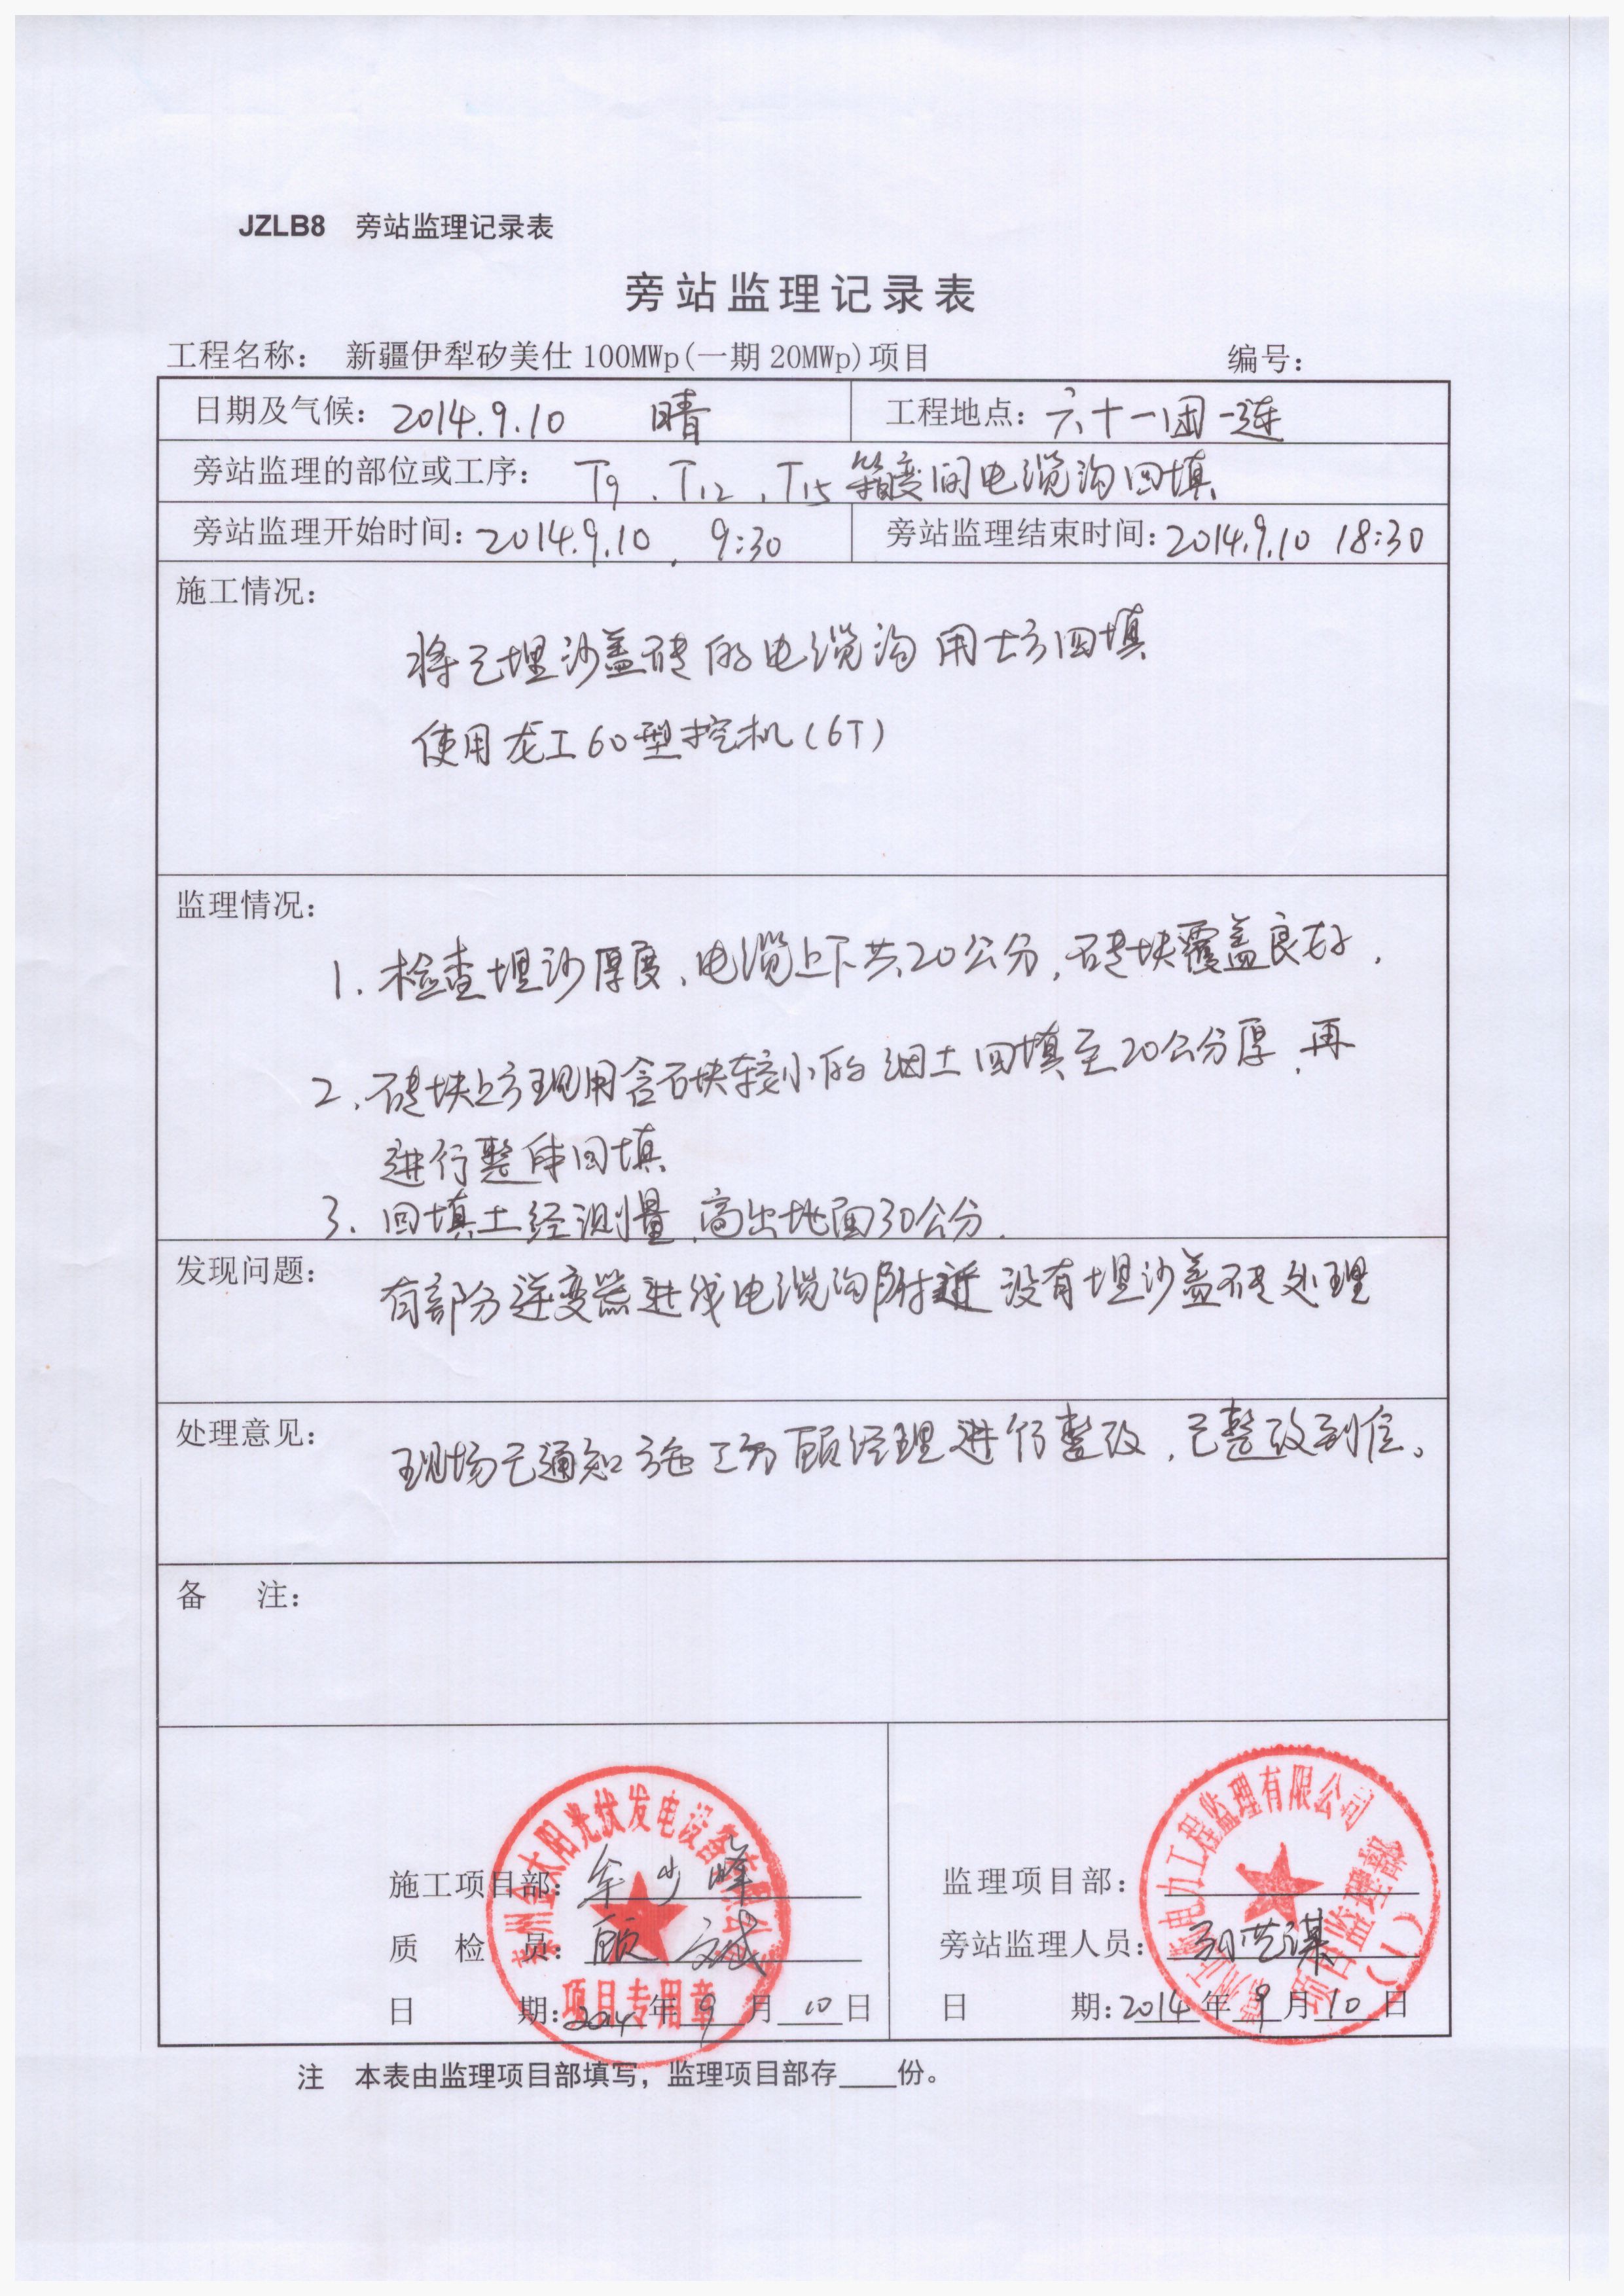 JZLB8 旁站监理记录表
旁站监理记录表
工程名称： 新疆伊犁矽美仕100MWp(一期20MWp)项目 编号：
日期及气候：2014.9.10 晴 工程地点：六十一团一连
旁站监理的部位或工序： T9、T12、T15箱变间电缆沟回填
旁站监理开始时间：2014.9.10. 9:30 旁站监理结束时间：2014.9.10 18:30
施工情况：
将已埋沙盖砖的电缆沟用土方回填
使用龙工60型挖机(6T)
监理情况：
1. 检查埋沙厚度、电缆上下共20公分，砖块覆盖良好，
2、砖块上方现用含石块较小的细土回填至20公分厚，再
进行整体回填
3、回填土经测量，高出地面30公分.
发现问题：
有部分逆变器进线电缆沟附近没有埋沙盖砖处理
处理意见：
现场已通知施工方顾经理进行整改，已整改到位。
备 注：
金太阳光伏发电设备
项目专用章
电力工程监理有限公司
项目监理部
(1)
施工项目部：
监理项目部：
质 检 员：顾
旁站监理人员：
日 期：2014年9月10日
日 期：2014年9月10日
注 本表由监理项目部填写，监理项目部存____份。